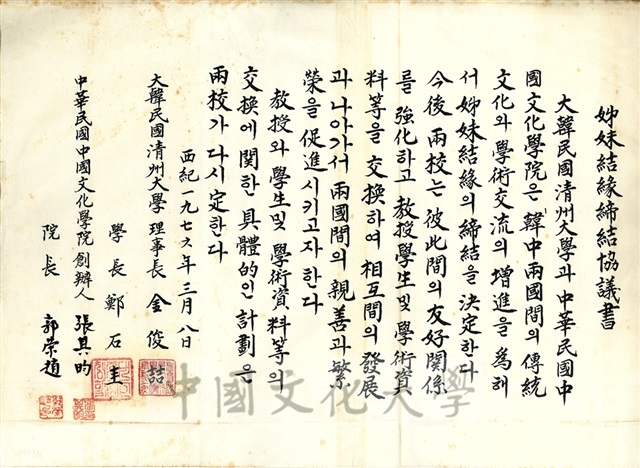 姊妹結緣締結協議書
大韓民國清州大學과 中華民國中
國文化學院은 韓中兩國間의 傳統
文化와 學術交流의 增進을 為해
서 姊妹結緣의 締結을 決定한다
今後 兩校는 彼此間의 友好關係
를 強化하고 教授學生및 學術資
料等을 交換하여 相互間의 發展
과 나아가서 兩國間의 親善과 繁
榮을 促進시키고자 한다
教授와 學生및 學術資料等의
交換에 關한 具體的인 計劃은
兩校가 다시 定한다
西紀一九七六年三月八日
大韓民國清州大學 理事長 金俊喆
學長 鄭石圭
中華民國中國文化學院 創辦人 張其昀
院長 郭榮趙
中國文化大學